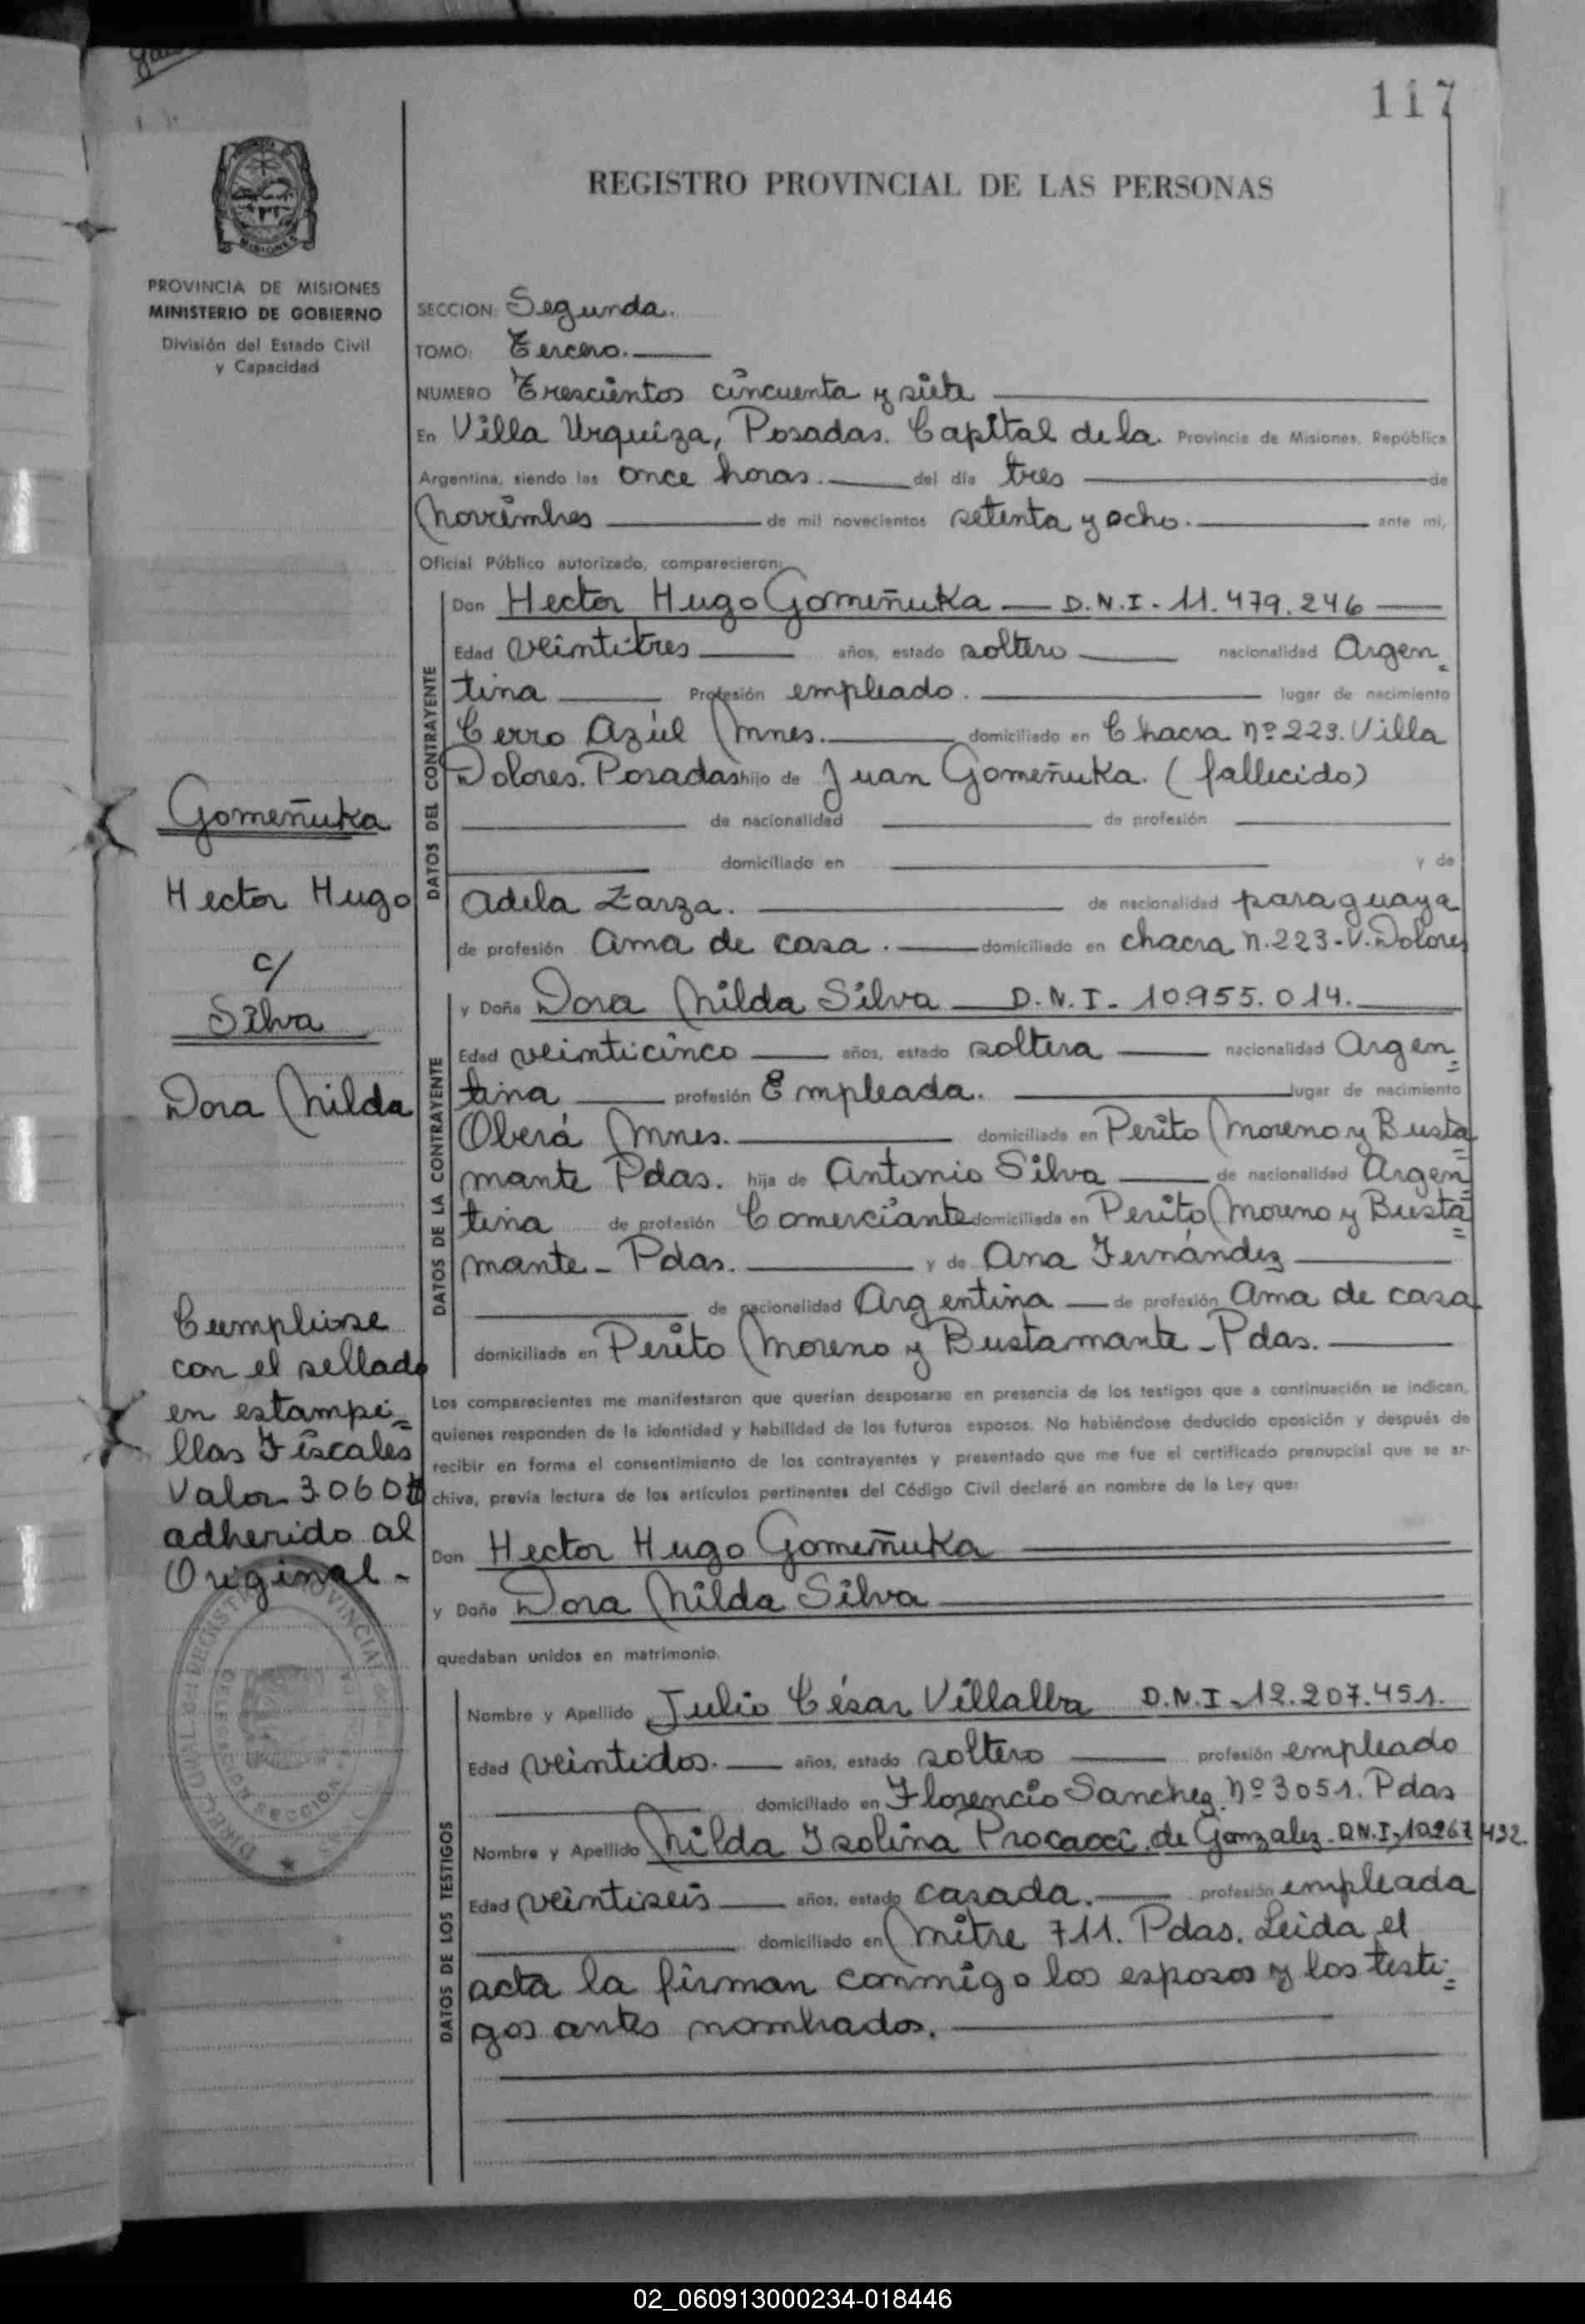 117
REGISTRO PROVINCIAL DE LAS PERSONAS
PROVINCIA DE MISIONES
MINISTERIO DE GOBIERNO
División del Estado Civil
y Capacidad
SECCION: Segunda.
TOMO: Tercero.
NUMERO Trescientos cincuenta y siete
En Villa Urquiza, Posadas. Capital de la Provincia de Misiones, República
Argentina, siendo las once horas. del día tres de
Noviembre de mil novecientos setenta y ocho. ante mi,
Oficial Público autorizado, comparecieron:
DATOS DEL CONTRAYENTE
Don Hector Hugo Gomeñuka D.N.I - 11.479.246
Edad veintitres años, estado soltero nacionalidad Argen=
tina Profesión empleado. lugar de nacimiento
Cerro Azúl Mnes. domiciliado en Chacra nº 223. Villa
Dolores. Posadas hijo de Juan Gomeñuka. (fallecido)
de nacionalidad de profesión
domiciliado en y de
Adela Zarza. de nacionalidad paraguaya
de profesión Ama de casa. domiciliado en chacra n. 223 - V. Dolores
Gomeñuka
Hector Hugo
c/
Silva
Dora Nilda
DATOS DE LA CONTRAYENTE
y Doña Dora Nilda Silva D.N.I - 10.955.014.
Edad veinticinco años, estado soltera nacionalidad Argen=
tina profesión Empleada. lugar de nacimiento
Oberá Mnes. domiciliada en Perito Moreno y Busta=
mante Pdas. hija de Antonio Silva de nacionalidad Argen=
tina de profesión Comerciante domiciliada en Perito Moreno y Busta=
mante - Pdas. y de Ana Fernández
de nacionalidad Argentina de profesión Ama de casa
domiciliada en Perito Moreno y Bustamante - Pdas.
Cumpliose
con el sellado
en estampi=
llas Fiscales
Valor 3.060
adherido al
Original -
Los comparecientes me manifestaron que querían desposarse en presencia de los testigos que a continuación se indican,
quienes responden de la identidad y habilidad de los futuros esposos. No habiéndose deducido oposición y después de
recibir en forma el consentimiento de los contrayentes y presentado que me fue el certificado prenupcial que se ar-
chiva, previa lectura de los artículos pertinentes del Código Civil declaré en nombre de la Ley que:
Don Hector Hugo Gomeñuka
y Doña Dora Nilda Silva
quedaban unidos en matrimonio.
DATOS DE LOS TESTIGOS
Nombre y Apellido Julio César Villalba D.N.I - 12.207.451.
Edad veintidos. años, estado soltero profesión empleado
domiciliado en Florencio Sanchez. Nº 3051. Pdas
Nombre y Apellido Nilda Isolina Procacci de Gonzalez - D.N.I, 10.267.432.
Edad veintiseis años, estado casada. profesión empleada
domiciliado en Mitre 711. Pdas. Leida el
acta la firman conmigo los esposos y los testi=
gos antes nombrados.
02_060913000234-018446